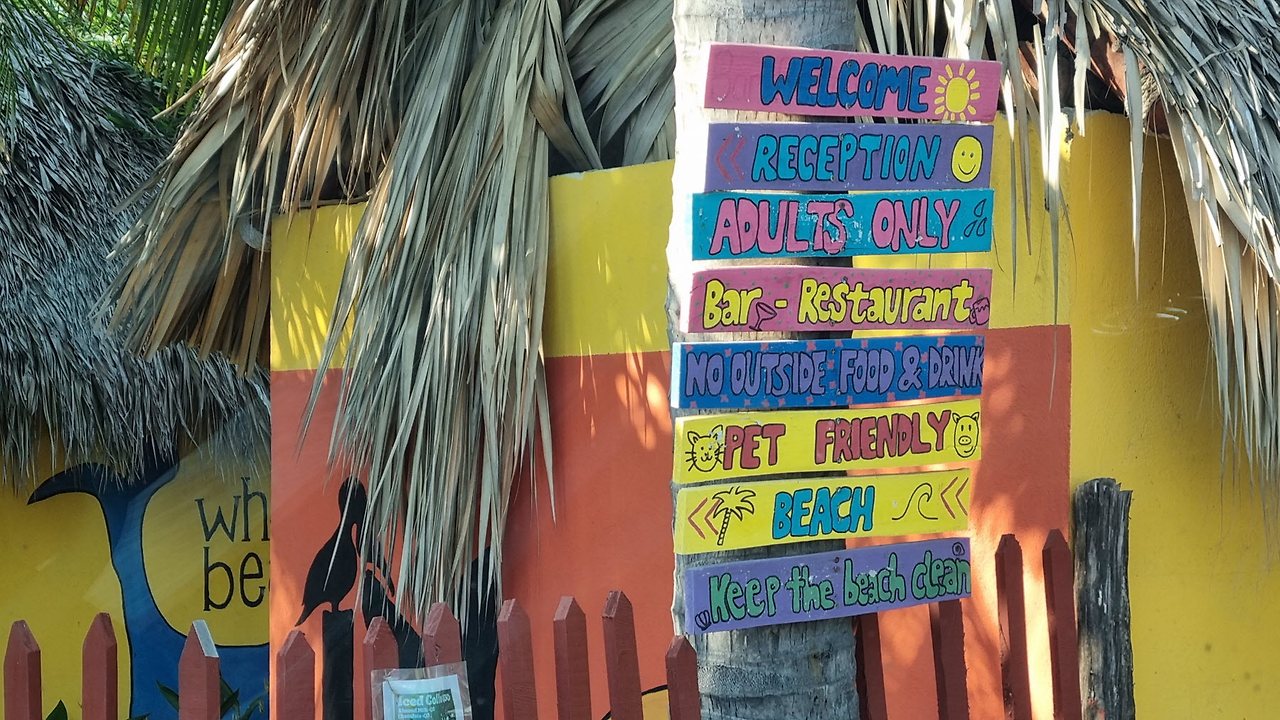 WELCOME
RECEPTION
ADULTS ONLY
Bar - Restaurant
NO OUTSIDE FOOD & DRINK
PET FRIENDLY
BEACH
Keep the beach clean
wh
be
Iced